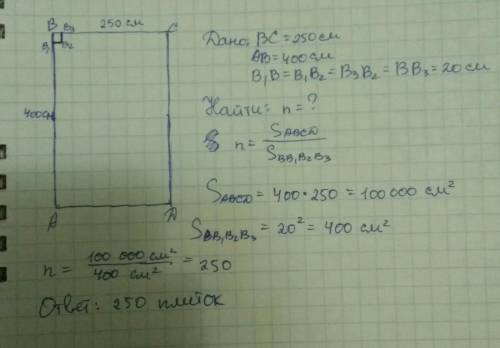 B B₃ 250 см C
B₁ B₂
400см
A D
Дано: BC = 250 см
AB = 400 см
B₁B = B₁B₂ = B₃B₂ = BB₃ = 20 см
Найти: n = ?
n = SABCD / SBB₁B₂B₃
SABCD = 400 · 250 = 100 000 см²
SBB₁B₂B₃ = 20² = 400 см²
n = 100 000 см² / 400 см² = 250
Ответ: 250 плиток